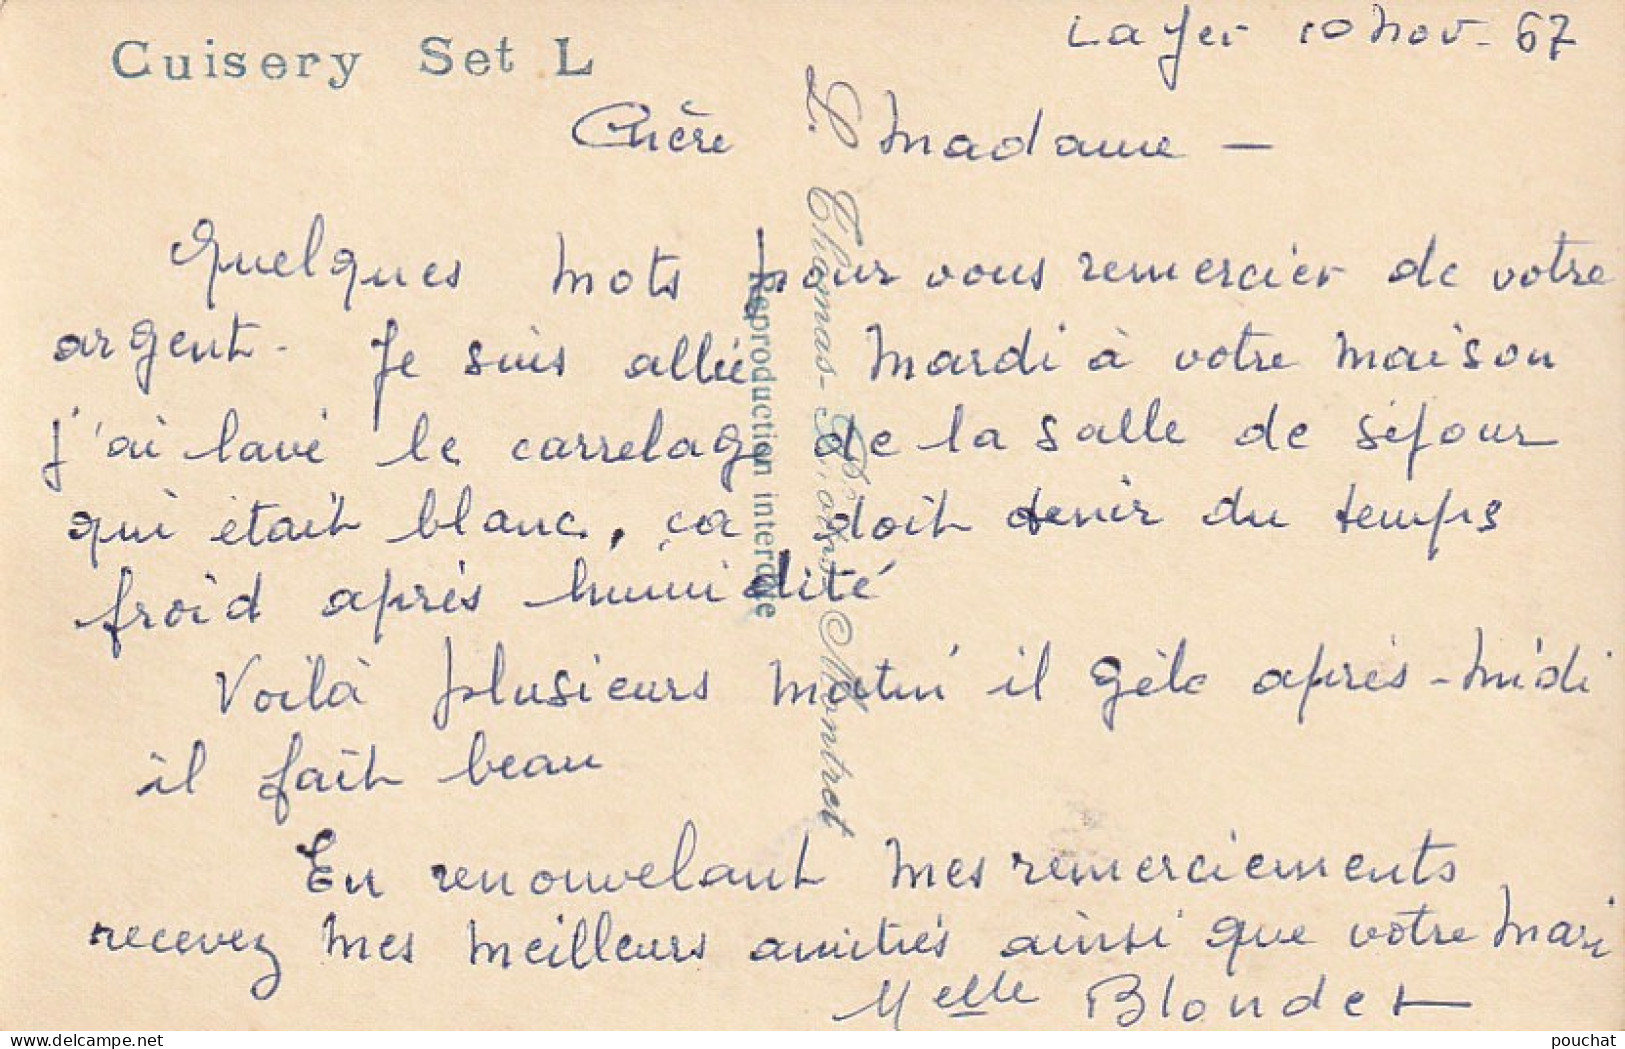 La Jer 10 Nov. 67
Cuisery Set L
Chère Madame —
Quelques mots pour vous remercier de votre
argent - Je suis allée Mardi à votre maison
j'ai lavé le carrelage de la salle de séjour
qui était blanc, ça doit venir du temps
froid après humidité
Voilà plusieurs matin il gèle après-midi
il fait beau
En renouvelant mes remerciements
recevez mes meilleurs amitiés ainsi que votre Mari
Melle Blondet
Reproduction interdite
L. Thomas- Montret
www.delcampe.net
pouchat